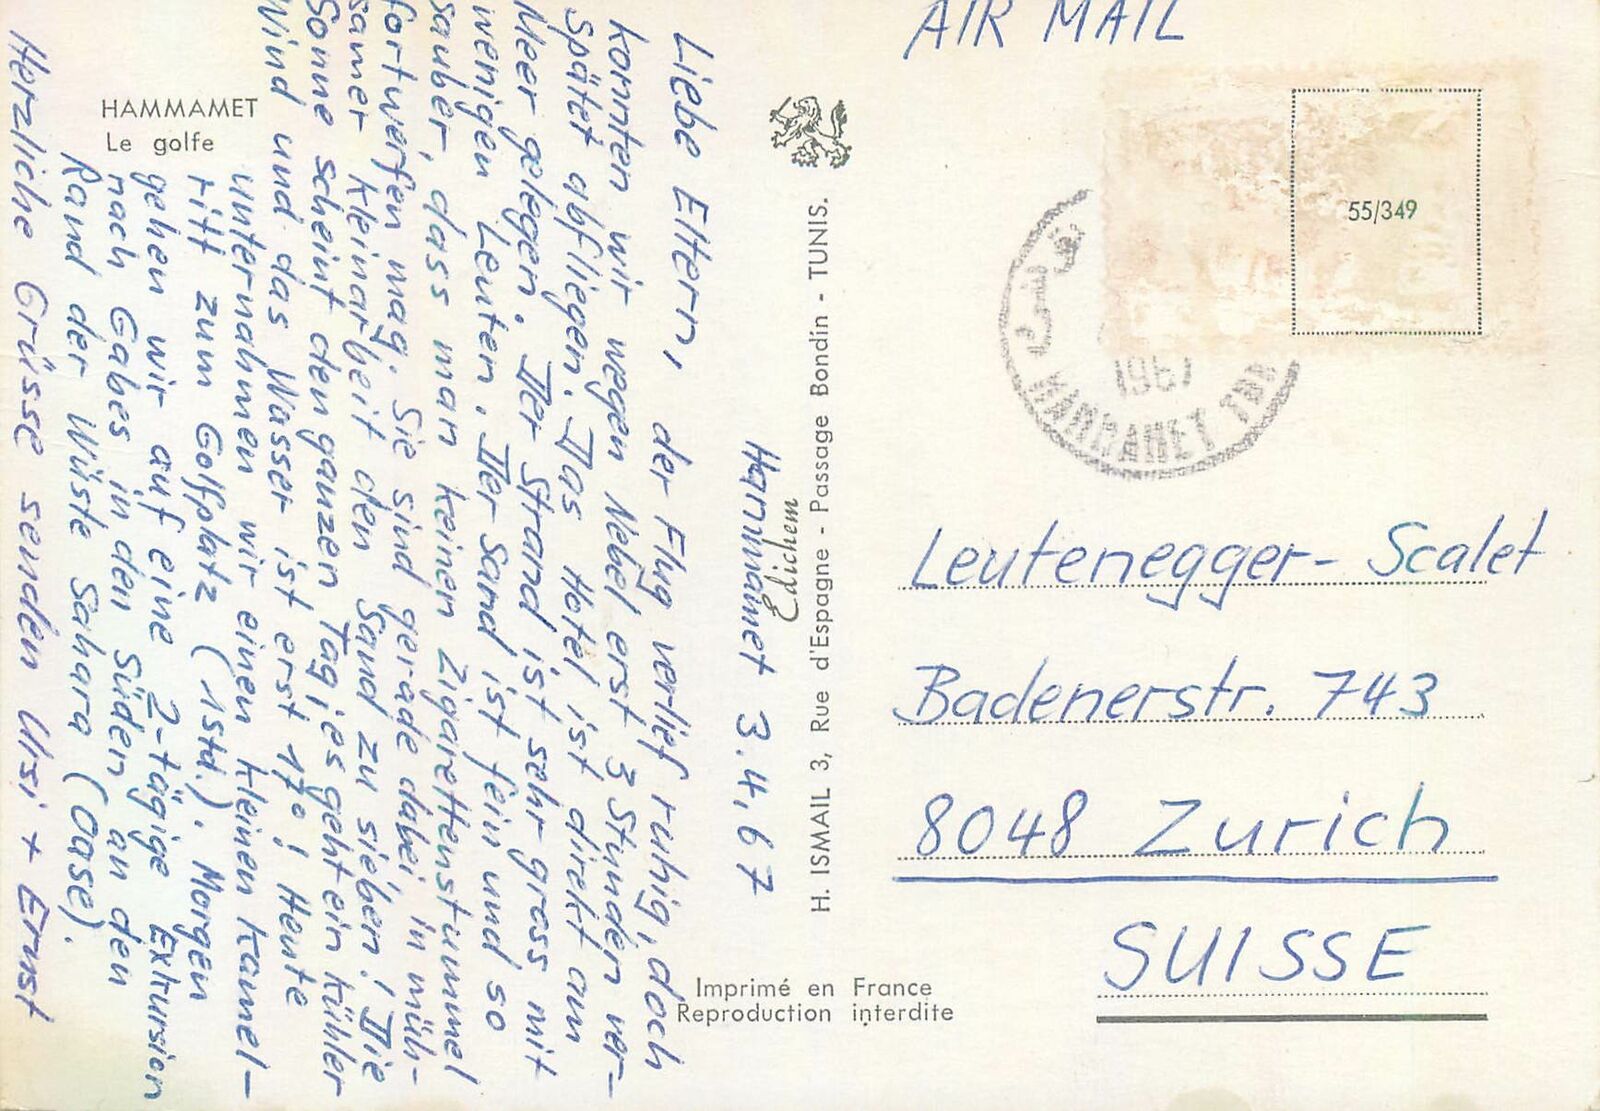 AIR MAIL
HAMMAMET
Le golfe
Edichem
H. ISMAIL 3, Rue d'Espagne - Passage Bondin - TUNIS.
Imprimé en France
Reproduction interdite
55/349
1967
HAMMAMET
Hammamet 3.4.67
Liebe Eltern, der Flug verlief ruhig, doch
konnten wir wegen Nebel erst 3 Stunden ver-
spätet abfliegen. Das Hotel ist direkt am
Meer gelegen. Der Strand ist sehr gross mit
wenigen Leuten. Der Sand ist fein und so
sauber, dass man keinen Zigarettenstummel
fortwerfen mag. Sie sind gerade dabei in müh-
samer kleinarbeit den Sand zu sieben! Die
Sonne scheint den ganzen Tag, es geht ein kühler
Wind und das Wasser ist erst 17°! Heute
unternahmen wir einen kleinen Kamel-
ritt zum Golfplatz (1 Std.). Morgen
gehen wir auf eine 2-tägige Exkursion
nach Gabes in den Süden an den
Rand der Wüste Sahara (Oase).
Herzliche Grüsse senden Ursi + Ernst
Leutenegger-Scalet
Badenerstr. 743
8048 Zurich
SUISSE